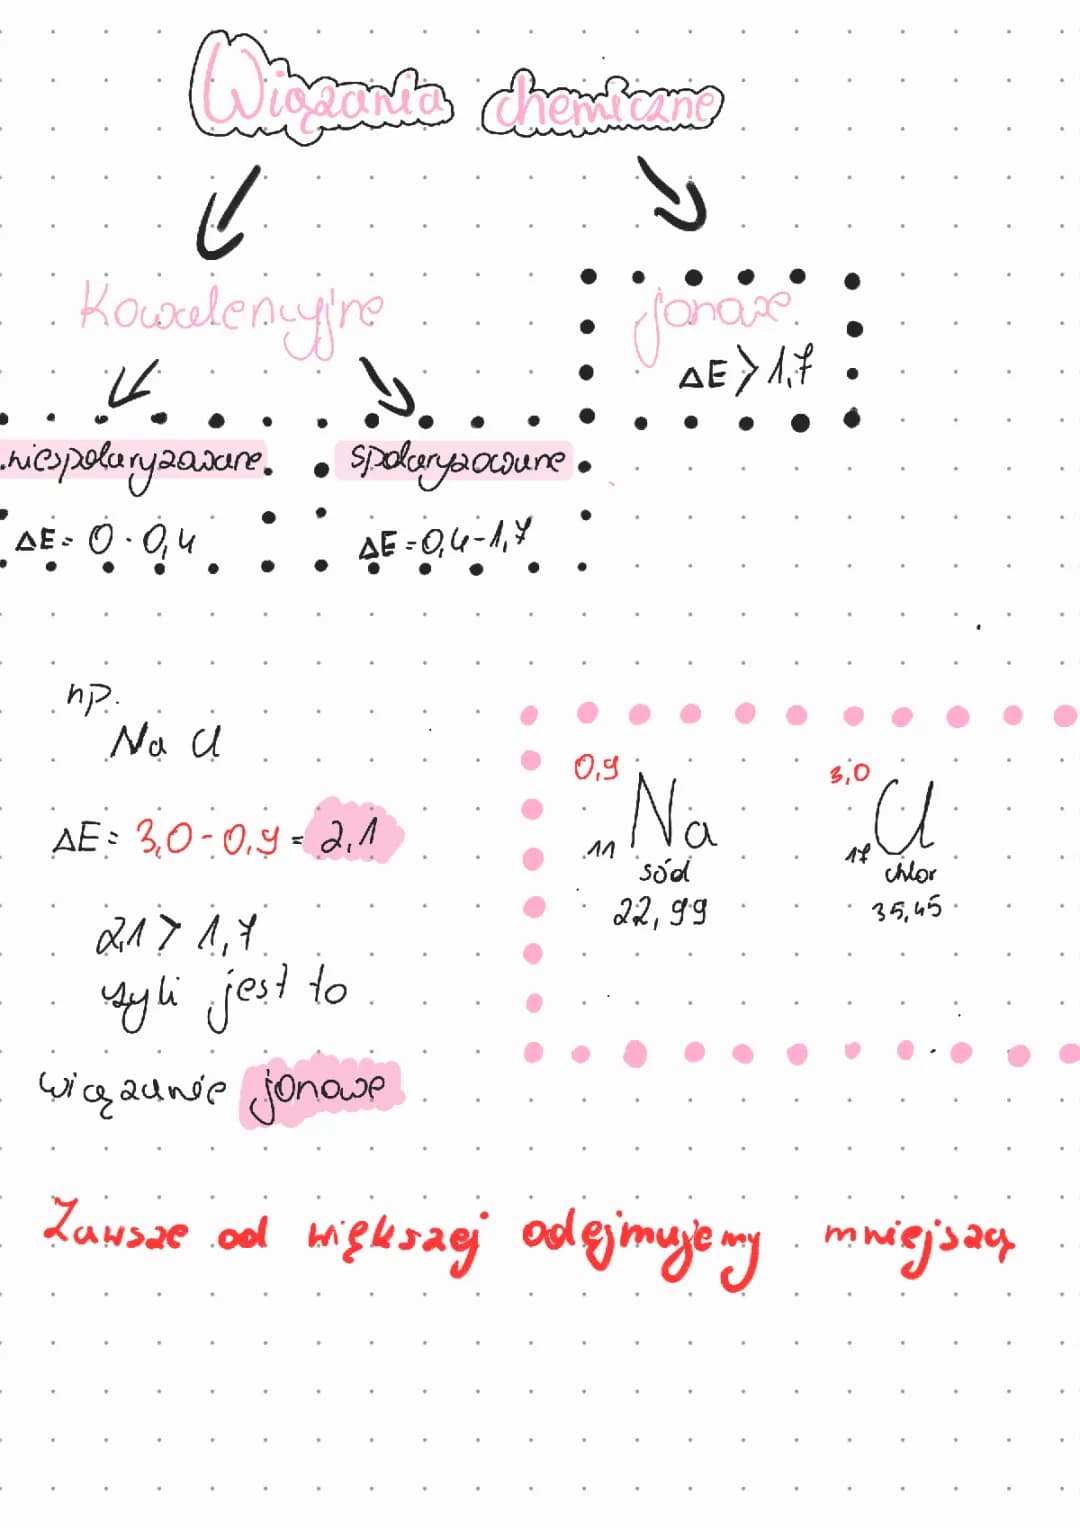 Wiązania chemiczne
Kowalencyjne
jonowe
ΔE > 1,7
niespolaryzowane
ΔE = 0 - 0,4
spolaryzowane
ΔE = 0,4 - 1,7
np.
Na Cl
ΔE = 3,0 - 0,9 = 2,1
2,1 > 1,7
czyli jest to
wiązanie jonowe
0,9
Na
11
sód
22,99
3,0
Cl
17
chlor
35,45
Zawsze od większej odejmujemy mniejszą